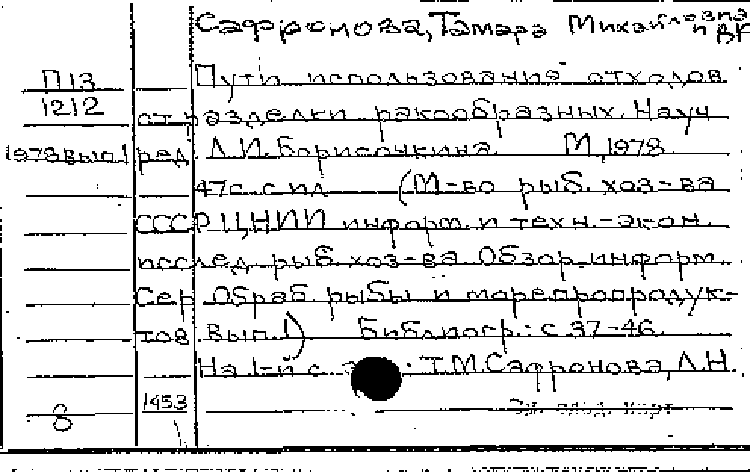 Сафронова, Тамара Михайловна
и др
П13 Пути использования отходов
1212 от разделки ракообразных. Науч
1978 вып.1 ред. Л.И. Борисочкина М, 1978
47с. с ил (М-во рыб. хоз-ва
СССР ЦНИИ информ. и техн.-экон.
исслед. рыб. хоз-ва. Обзор. информ.
Сер Обраб. рыбы и морепродук-
тов. Вып.1) Библиогр.: с 37-46.
На 1-й с. : Т.М.Сафронова, Л.Н.
8 1453